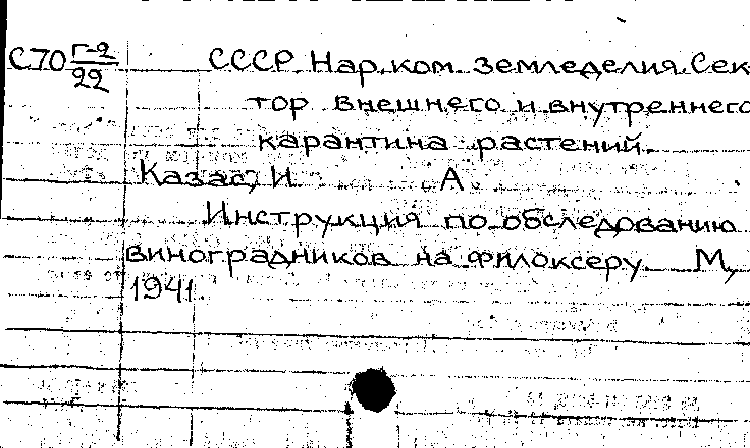 С70 Г-2/22 СССР. Нар.ком. Земледелия. Сек
тор внешнего и внутреннего
карантина растений.
Казас, И. А.
Инструкция по обследованию
виноградников на филоксеру. М,
1941.